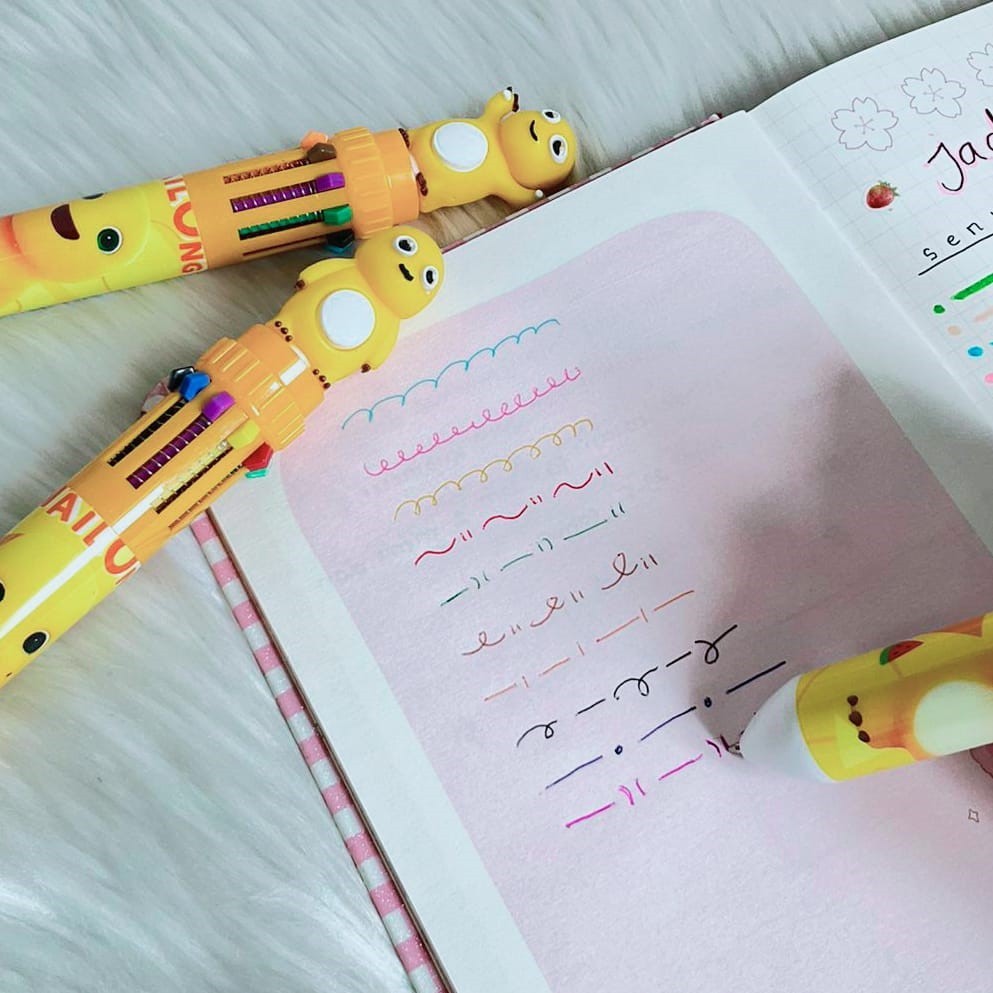 ILONG
NAILO
Jad
sen